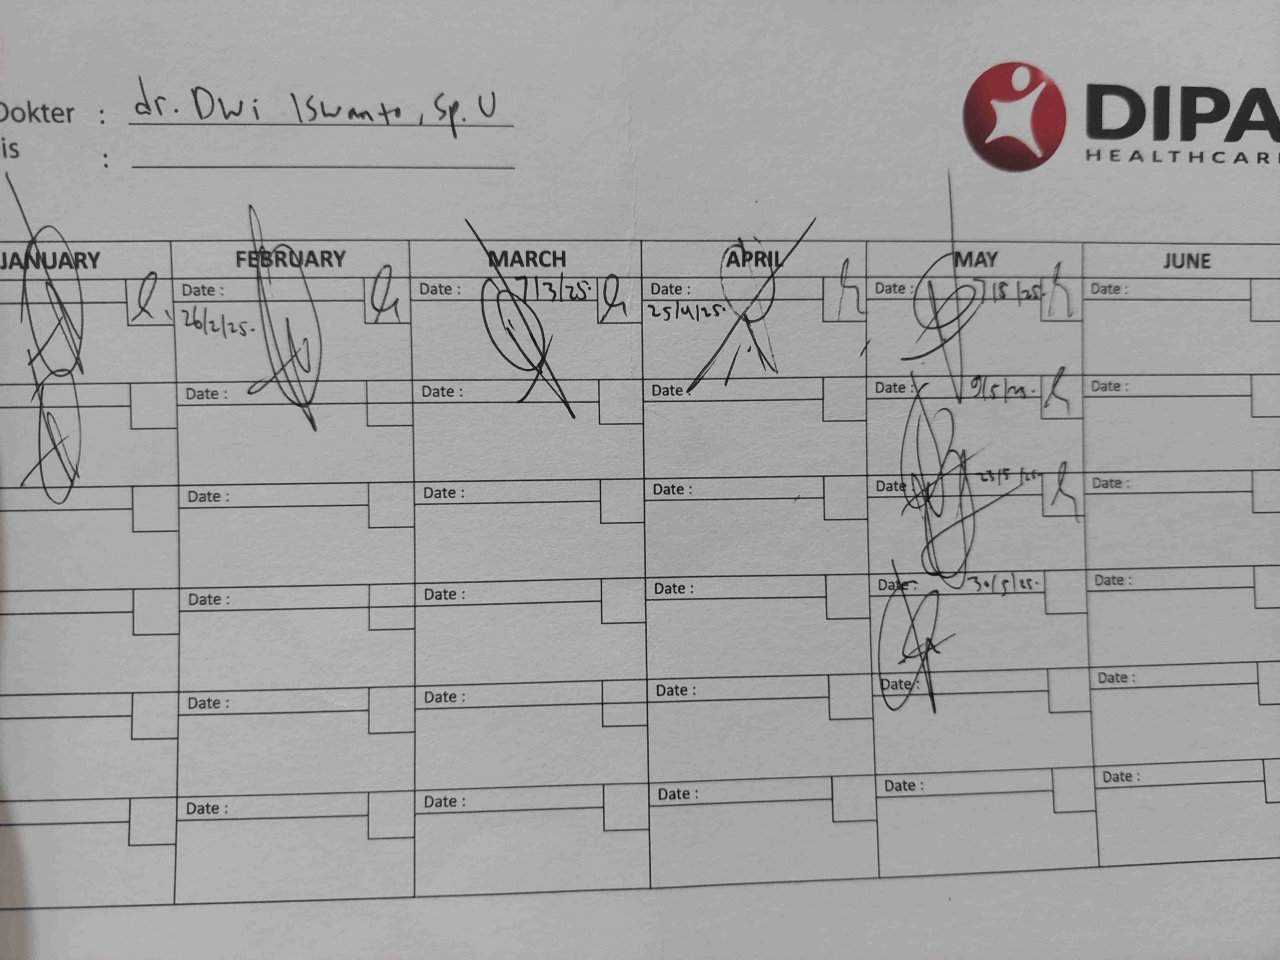 Dokter : dr. Dwi Iswanto, Sp. U
is :
DIPA
HEALTHCAR
JANUARY FEBRUARY MARCH APRIL MAY JUNE
Date : Date : 7/3/25. Date : Date : 7/5/25. Date :
26/2/25. 25/4/25.
Date : Date : Date : Date : 9/5/25. Date :
Date : Date : Date : Date : 23/5/25. Date :
Date : Date : Date : Date : 30/5/25. Date :
Date : Date : Date : Date : Date :
Date : Date : Date : Date : Date :